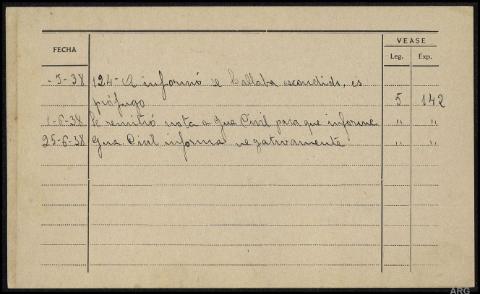 VEASE
FECHA Leg. Exp.
-5-38 124-A informó se hallaba escondido, es
prófugo 5 142
1-6-38 Se remitió nota a Gua Civil para que informe " "
25-6-38 Gua Civil informa negativamente " "
ARG